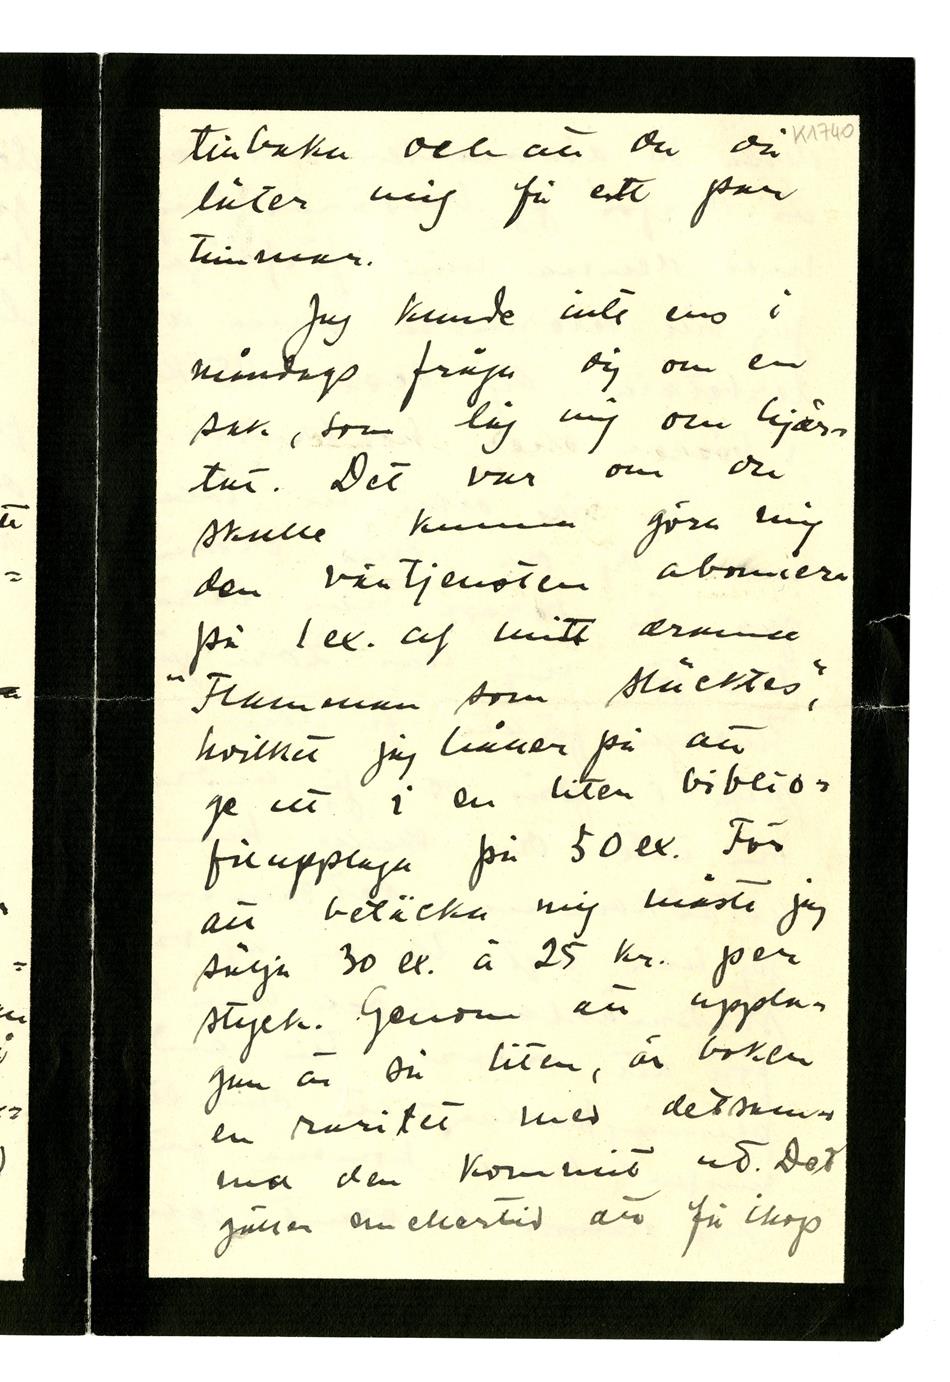 K1740
tillbaka och att du då
låter mig få ett par
timmar.
Jag kunde inte ens i
måndags fråga dig om en
sak, som låg mig om hjär-
tat. Det var om du
skulle kunna göra mig
den väntjensten abonnera
på 1 ex. af mitt drama
"Flamman som släcktes",
hvilket jag håller på att
ge ut i en liten biblio-
filupplaga på 50 ex. För
att betäcka mig måste jag
sälja 30 ex. à 25 kr. per
styck. Genom att uppla-
gan är så liten, är boken
en raritet med detsam-
ma den kommit ut. Det
gäller emellertid att få ihop